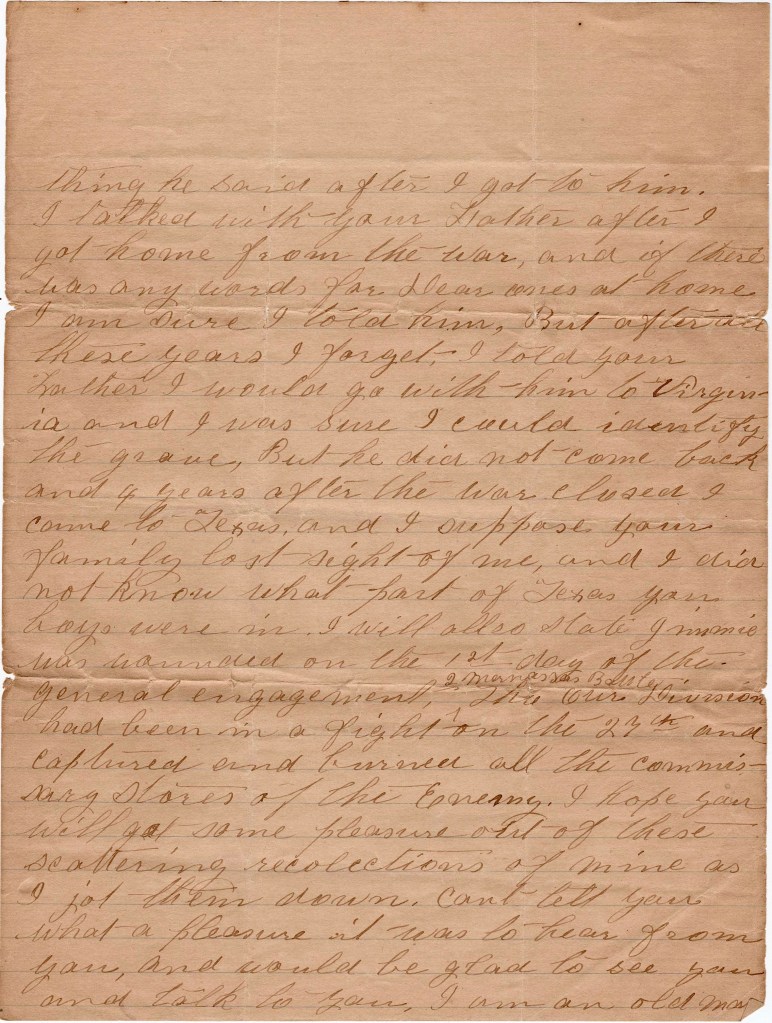 thing he said after I got to him.
I talked with your Father after I
got home from the war, and if there
was any words for dear ones at home
I am sure I told him, But after all
these years I forget. I told your
Father I would go with him to Virgin-
ia and I was sure I could identify
the grave, But he did not come back
and 4 years after the war closed I
came to Texas, and I suppose your
family lost sight of me, and I did
not know what part of Texas you
boys were in. I will allso state Jimmie
was wounded on the 1st day of the
2 Manassas Battle
general engagement, Our Division
had been in a fight on the 27th and
captured and burned all the commis-
sary stores of the Enemy. I hope you
will get some pleasure out of these
scattering recolections of mine as
I jot them down. Cant tell you
what a pleasure it was to hear from
you, and would be glad to see you
and talk to you, I am an old man